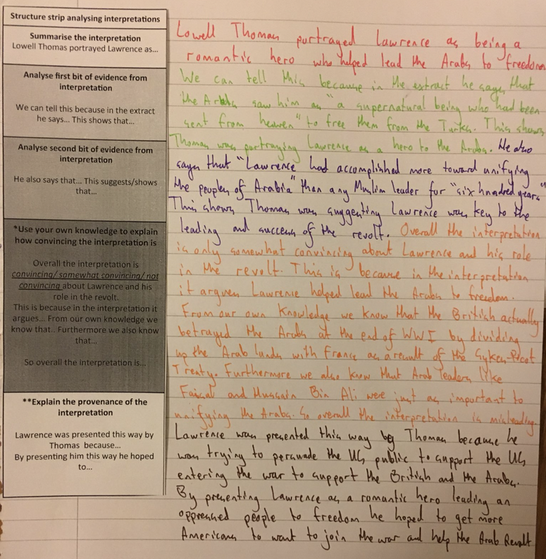 Structure strip analysing interpretations
Summarise the interpretation
Lowell Thomas portrayed Lawrence as...
Analyse first bit of evidence from
interpretation
We can tell this because in the extract
he says... This shows that...
Analyse second bit of evidence from
interpretation
He also says that... This suggests/shows
that...
*Use your own knowledge to explain
how convincing the interpretation is
Overall the interpretation is
convincing/ somewhat convincing/ not
convincing about Lawrence and his
role in the revolt.
This is because in the interpretation it
argues... From our own knowledge we
know that.. Furthermore we also know
that...
So overall the interpretation is...
**Explain the provenance of the
interpretation
Lawrence was presented this way by
Thomas because...
By presenting him this way he hoped
to...
Lowell Thomas portrayed Lawrence as being a
romantic hero who helped lead the Arabs to freedom
We can tell this because in the extract he says that
the Arabs saw him as "a supernatural being who had been
sent from heaven" to free them from the Turks. This shows
Thomas was portraying Lawrence as a hero to the Arabs. He also
says that "Lawrence had accomplished more toward unifying
the peoples of Arabia" than any Muslim leader for "six hundred years"
This shows Thomas was suggesting Lawrence was key to the
leading and success of the revolt. Overall the interpretation
is only somewhat convincing about Lawrence and his role
in the revolt. This is because in the interpretation
it argues Lawrence helped lead the Arabs to freedom.
From our own knowledge we know that the British actually
betrayed the Arabs at the end of WWI by dividing
up the Arab lands with France as a result of the Sykes-Picot
Treaty. Furthermore we also know that Arab leaders like
Faisal and Hussain Bin Ali were just as important to
unifying the Arabs. So overall the interpretation is misleading
Lawrence was presented this way by Thomas because he
was trying to persuade the US public to support the US
entering the war to support the British and the Arabs.
By presenting Lawrence as a romantic hero leading an
oppressed people to freedom he hoped to get more
Americans to want to join the war and help the Arab Revolt